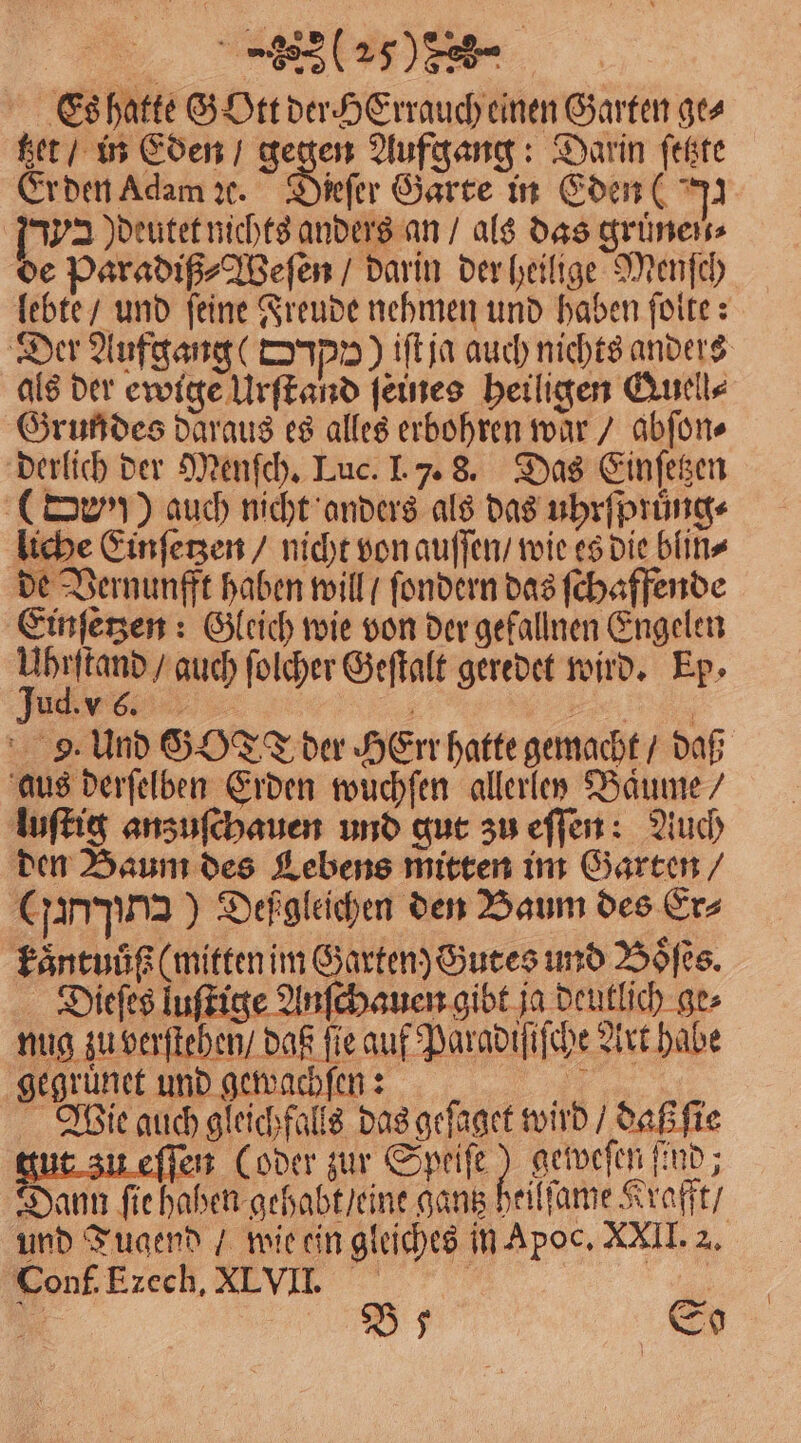 (25)
Es hatte GOtt der HErr auch einen Garten ge⸗
tzet / in Eden / gegen Aufgang: Darin ſetzte
Er den Adam ꝛc. Dieſer Garte in Eden (גן
בעדן) deutet nichts anders an / als das gruͤnen⸗
de Paradiß⸗Weſen / darin der heilige Menſch
lebte / und ſeine Freude nehmen und haben ſolte:
Der Aufgang (מקדם) iſt ja auch nichts anders
als der ewige Urſtand ſeines heiligen Quell⸗
Grundes daraus es alles erbohren war / abſon⸗
derlich der Menſch. Luc. I. 7. 8. Das Einſetzen
(וישם) auch nicht anders als das uhrſpruͤng⸗
liche Einſetzen / nicht von auſſen / wie es die blin⸗
de Vernunfft haben will / ſondern das ſchaffende
Einſetzen: Gleich wie von der gefallnen Engelen
Uhrſtand / auch ſolcher Geſtalt geredet wird. Ep.
Jud. v 6.
9. Und GOTT der HErr hatte gemacht / daß
aus derſelben Erden wuchſen allerley Baͤume /
luſtig anzuſchauen und gut zu eſſen: Auch
den Baum des Lebens mitten im Garten /
(בתוך הגן) Deßgleichen den Baum des Er⸗
kaͤntnuͤß (mitten im Garten) Gutes und Boͤſes.
Dieſes luſtige Anſchauen gibt ja deutlich ge⸗
nug zu verſtehen / daß ſie auf Paradiſiſche Art habe
gegruͤnet und gewachſen:
Wie auch gleichfalls das geſaget wird / daß ſie
gut zu eſſen (oder zur Speiſe) geweſen ſind;
Dann ſie haben gehabt / eine gantz heilſame Krafft /
und Tugend / wie ein gleiches in Apoc. XXII. 2.
Conf. Ezech. XLVII.
B 5 So